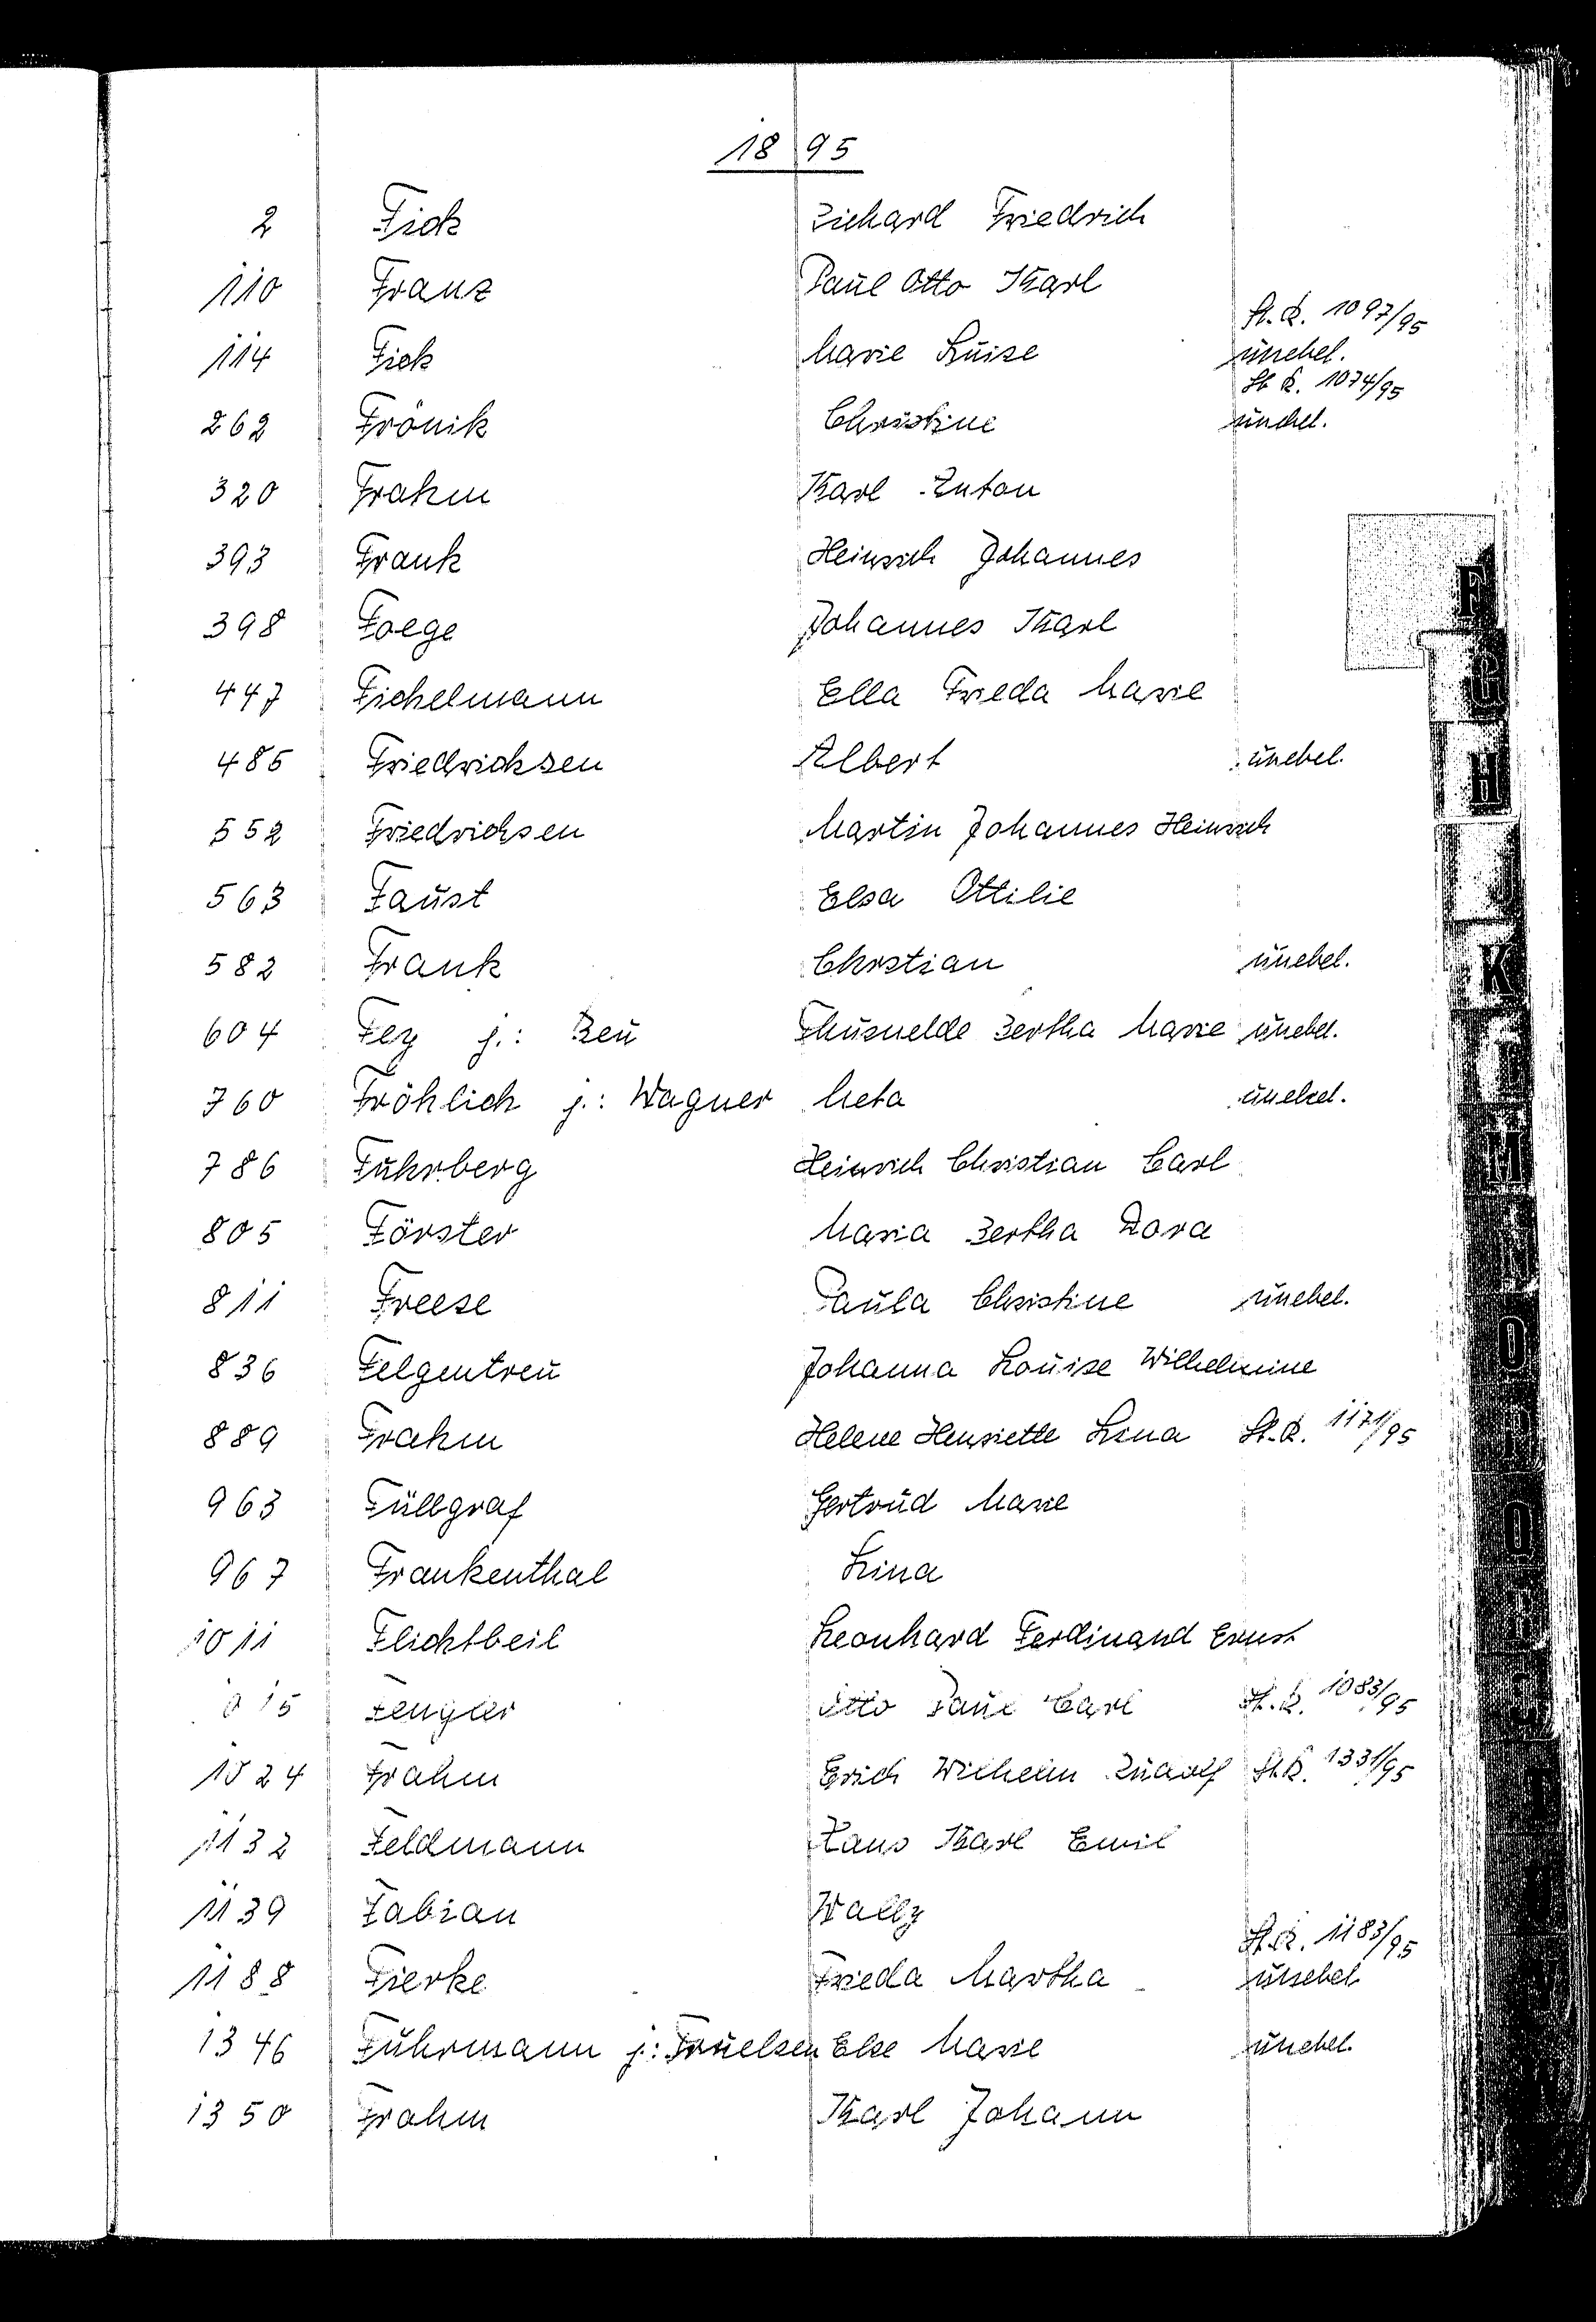 1895
2 Fick Richard Friedrich
110 Franz Paul Otto Karl
St. R. 1097/95
114 Fick Marie Luise unehel.
St. R. 1074/95
262 Frönik Christine unehel.
320 Frahm Karl Anton
393 Frank Heinrich Johannes
398 Foege Johannes Karl
447 Fichelmann Ella Frieda Marie
485 Friedrichsen Albert unehel.
552 Friedrichsen Martin Johannes Heinrich
563 Faust Elsa Ottilie
582 Frank Chrstian unehel.
604 Fey j.: Beu Thusnelde Bertha Marie unehel.
760 Fröhlich j.: Wagner Meta unehel.
786 Fuhrberg Heinrich Christian Carl
805 Förster Maria Bertha Dora
811 Freese Paula Christine unehel.
836 Felgentreu Johanna Louise Wilhelmine
889 Frahm Helene Henriette Lina St. R. 1171/95
963 Füllgraf Gertrud Marie
967 Frankenthal Lina
1011 Flichtbeil Leonhard Ferdinand Ernst
1015 Fengler Otto Paul Carl St. R. 1083/95
1024 Frahm Erich Wilhelm Rudolf St. R. 1331/95
1132 Feldmann Hans Karl Emil
1139 Fabian Wally
St. R. 1183/95
1188 Fierke Frieda Martha unehel.
1346 Fuhrmann j.: Truelsen Else Marie unehel.
1350 Frahm Karl Johann
F
G
H
J
K
L
M
N
O
P
Q
R
S
T